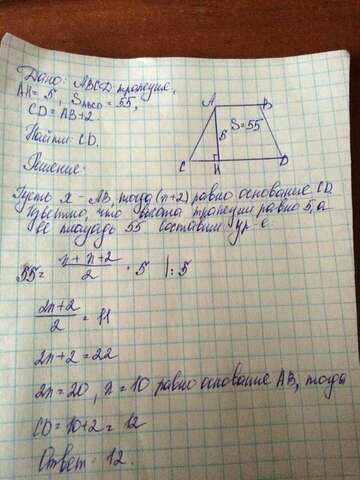 Дано: ABCD трапеция,
AH = 5, SABCD = 55,
CD = AB + 2.
Найти: CD.
Решение:
A B
5 S = 55
C H D
Пусть x - AB, тогда (x+2) равно основание CD.
Известно, что высота трапеции равна 5, а
её площадь 55 составим ур-е
55 = x + x + 2 / 2 · 5 |: 5
2x + 2 / 2 = 11
2x + 2 = 22
2x = 20, x = 10 равно основание AB, тогда
CD = 10 + 2 = 12
Ответ: 12.